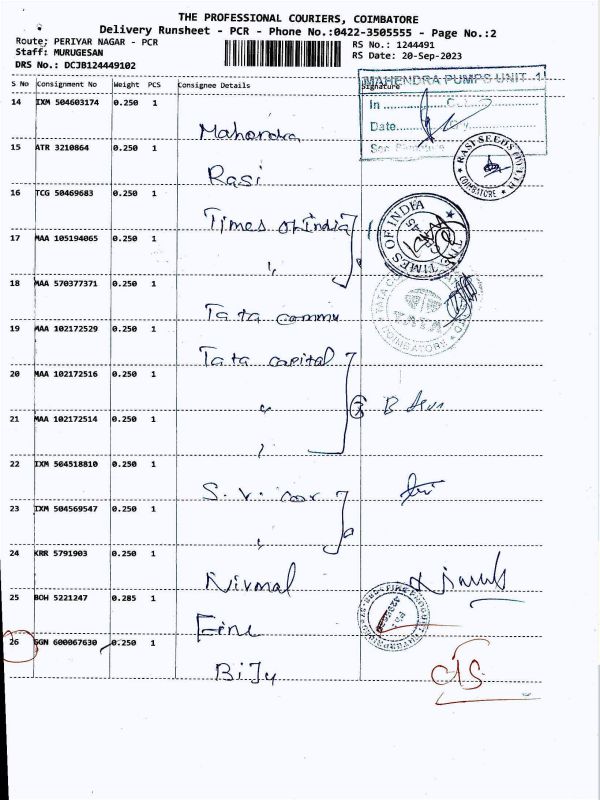 THE PROFESSIONAL COURIERS, COIMBATORE
Delivery Runsheet - PCR - Phone No.:0422-3505555 - Page No.:2
Route; PERIYAR NAGAR - PCR
RS No.: 1244491
Staff: MURUGESAN
RS Date: 20-Sep-2023
DRS No.: DCJB124449102
S No Consignment No Weight PCS Consignee Details Signature
MAHENDRA PUMPS UNIT 1
14 IXM 504603174 0.250 1
In
Date
Mahendra
15 ATR 3210864 0.250 1
RASI SEEDS COIMBATORE
Rasi
16 TCG 50469683 0.250 1
Times of India
THE TIMES OF INDIA
17 MAA 105194065 0.250 1
"
18 MAA 570377371 0.250 1
TATA COIMBATORE
Tata commu
19 MAA 102172529 0.250 1
Tata capital
20 MAA 102172516 0.250 1
" 3
21 MAA 102172514 0.250 1
"
22 IXM 504518810 0.250 1
S.V.
23 IXM 504569547 0.250 1
"
24 KRR 5791903 0.250 1
Nirmal
25 BOH 5221247 0.285 1
Fine
26 GGN 600067630 0.250 1
BiJu